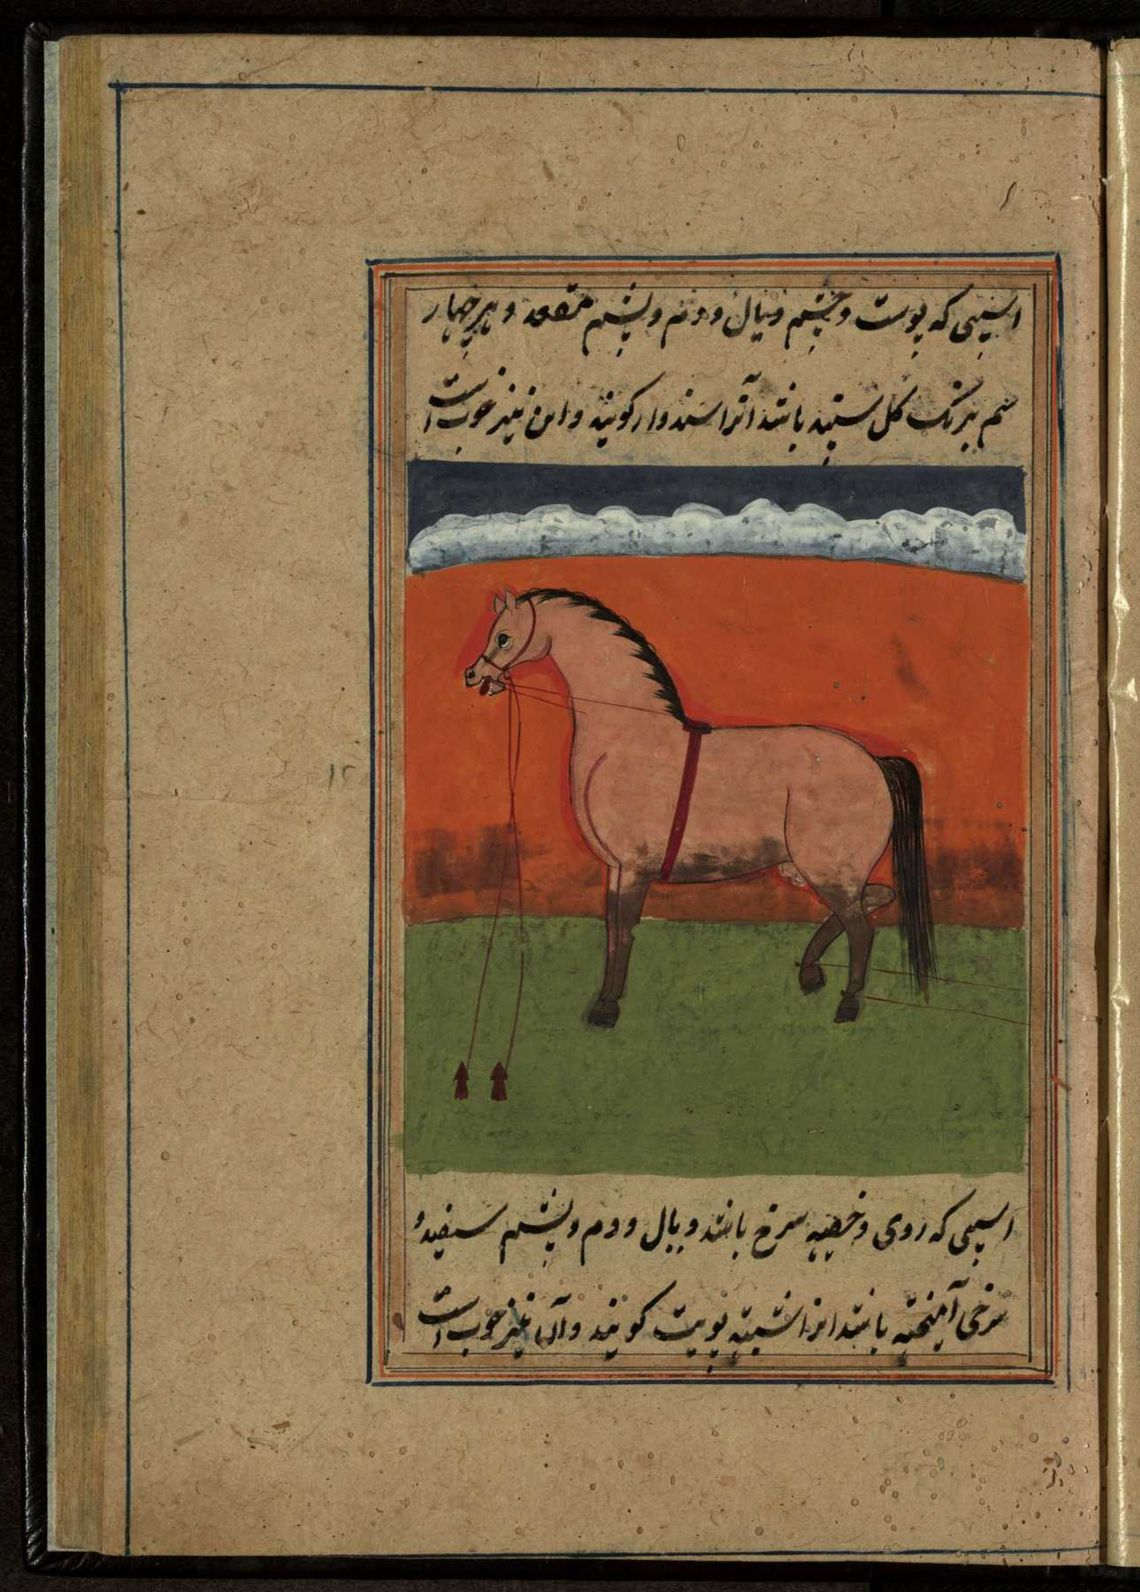 اسپی که پوست و چشم و یال و دم و پشم مقعد و هر چهار
سم برنک کل سپید باشد آنرا کویند و این نیز خوب است
اسپی که روی و خصیه سرخ باشد و یال و دم و پشم سفید و
سرخی آمیخته باشد انرا کویند و آن نیز خوب است